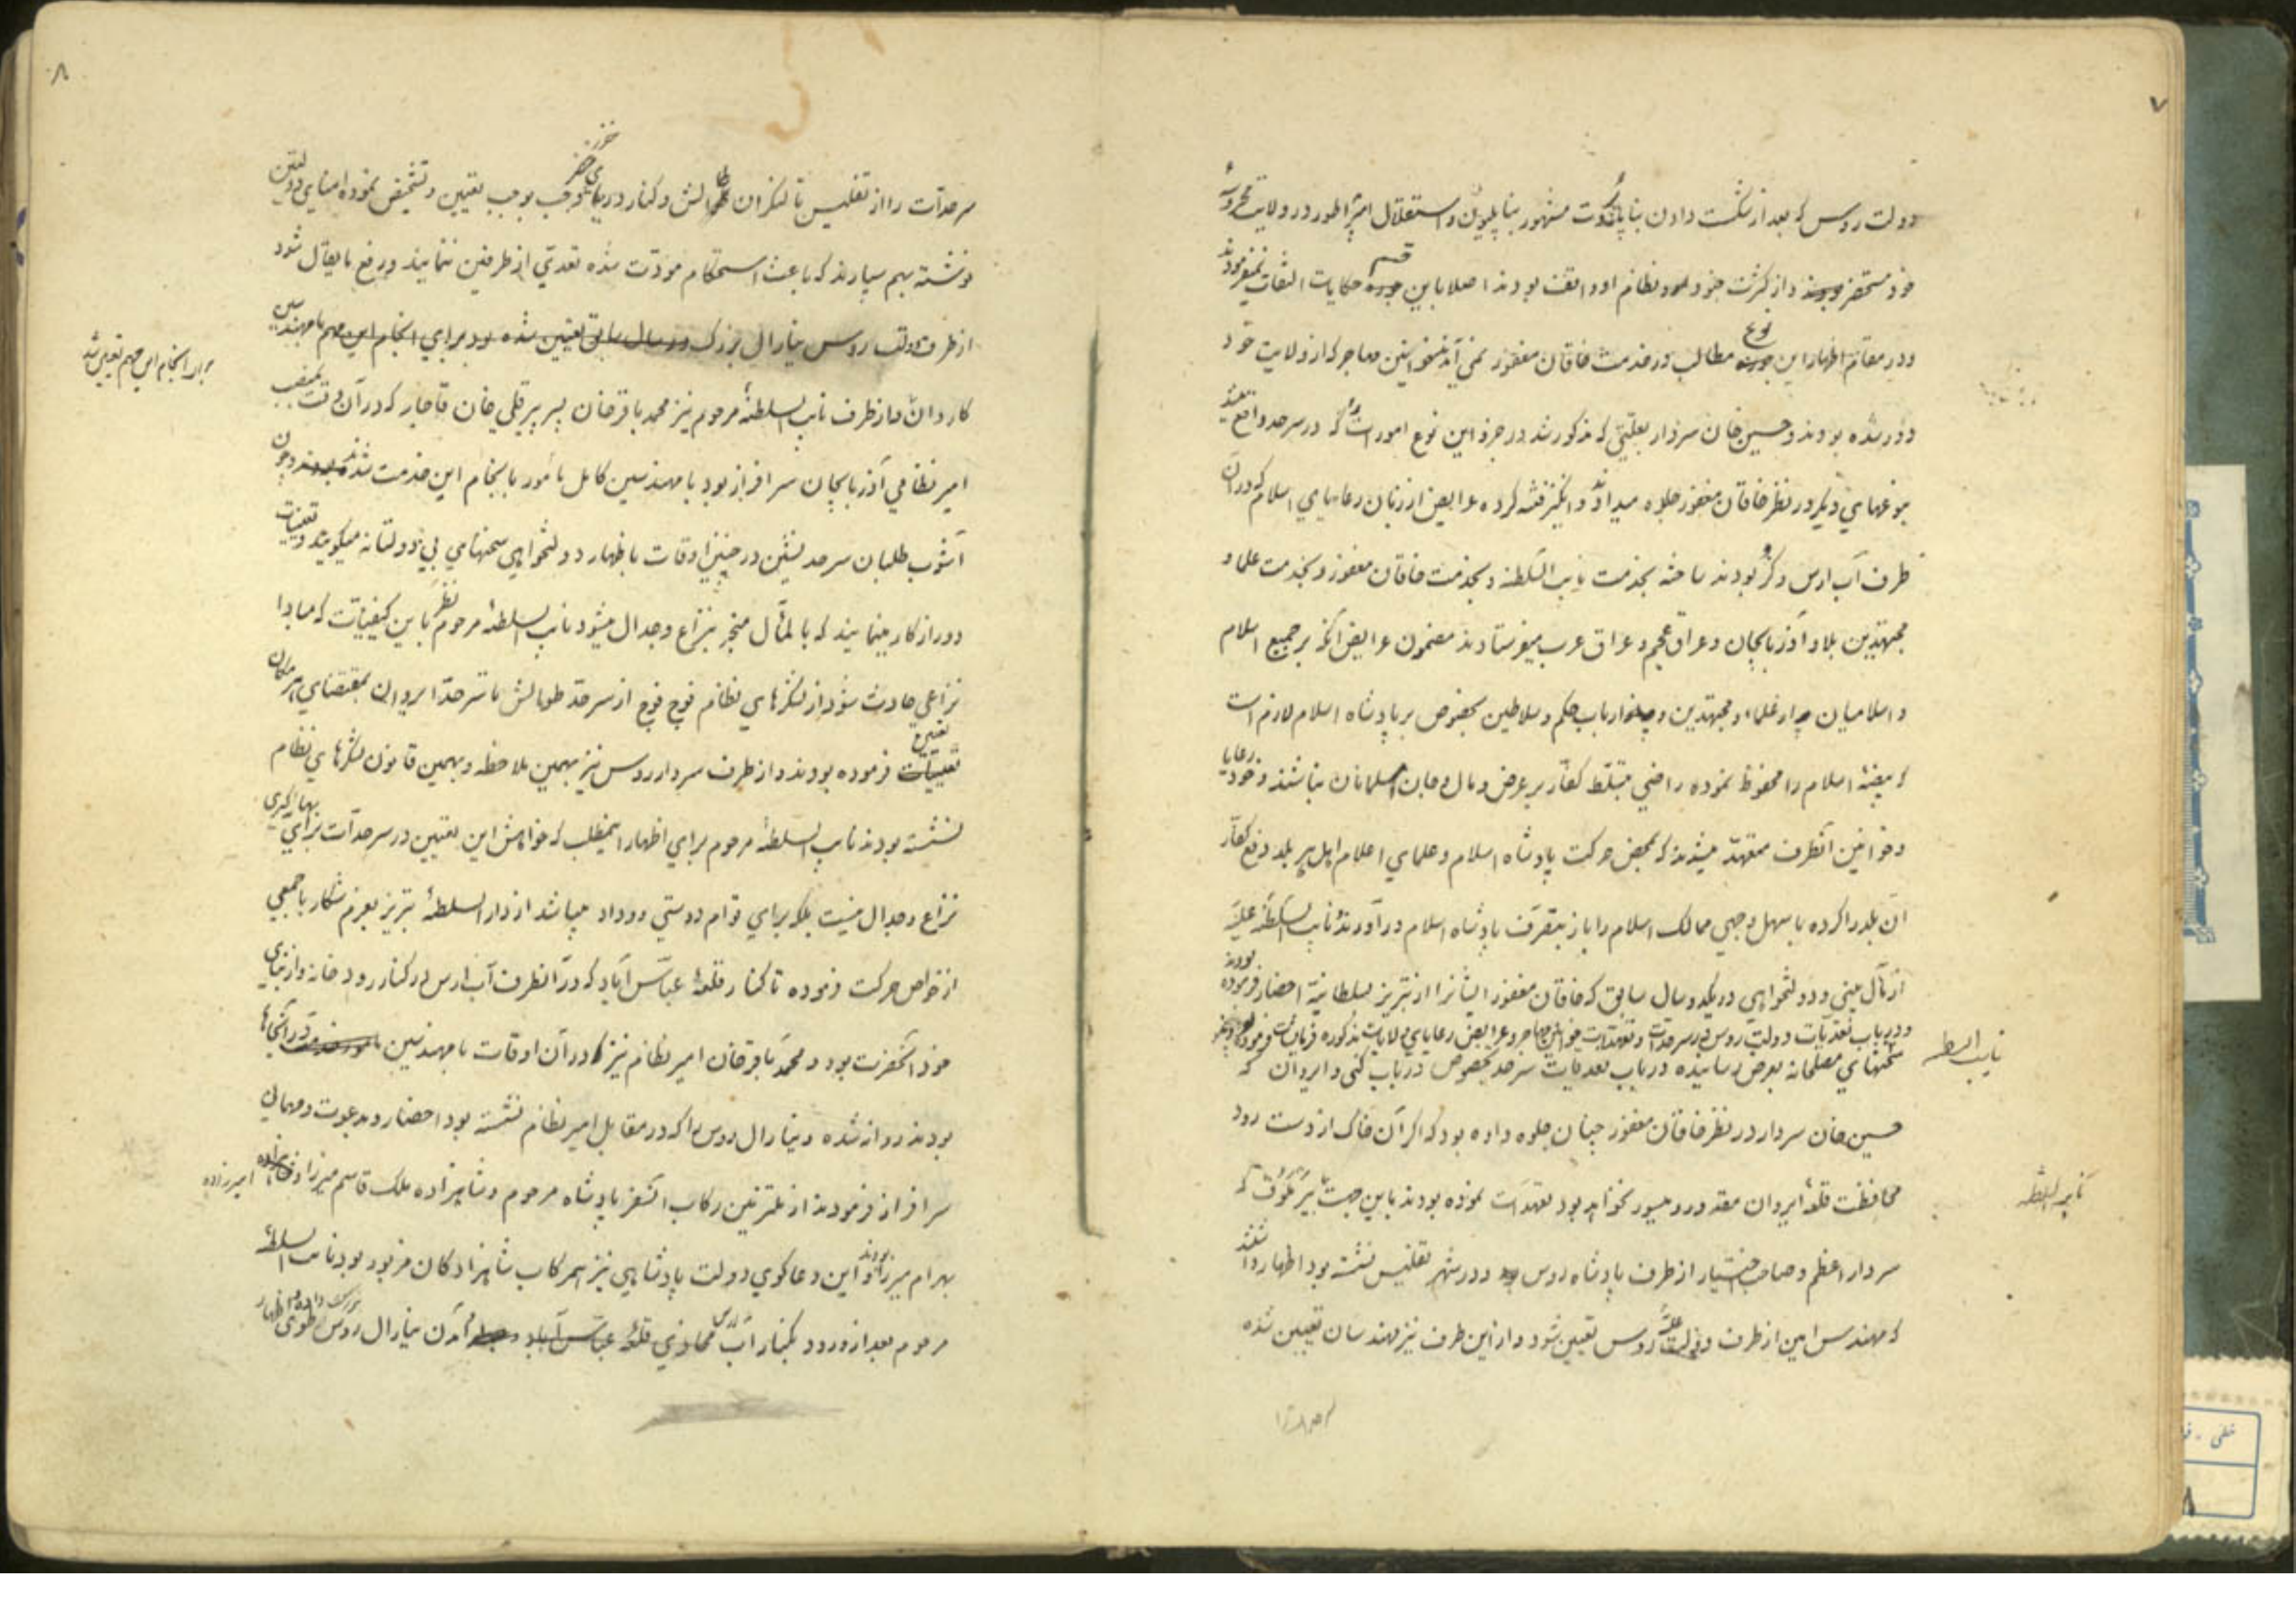 ۷
دولت روس که بعد از شکست دادن بناپارت مشهور بناپلیون و استقلال امپراطور در ولایت محروسهٔ
خود مستحضر و از کثرت جنود و نظام او واقف بودند اصلا باین قسم حکایات التفات نمیفرمودند
و در مقام اظهار این نوع مطالب در خدمت خاقان مغفور نمی آمدند خوانین مهاجر که از ولایت خود
دور شده بودند و حسین خان سردار بعلتی که مذکور شد در جزو این نوع امورات را که در سرحد واقع میشد
بنوعهای دیگر در نظر خاقان مغفور جلوه میدادند و انگیز فتنه کرده عرایض از زبان رعایای اسلام که در آن
طرف آب ارس و کر بودند ساخته بخدمت نایب السلطنه و بخدمت خاقان مغفور و بخدمت علما و
مجتهدین بلاد آذربایجان و عراق عجم و عراق عرب میفرستادند مضمون عرایض آنکه بر جمیع اسلام
و اسلامیان چه از علماء و مجتهدین و چه از ارباب حکم و سلاطین بخصوص بر پادشاه اسلام لازم است
که بیضهٔ اسلام را محفوظ نموده راضی بتسلط کفار بر عرض و مال و جان مسلمانان نباشند و خود رعایا
و خوانین آنطرف متعهد میشوند که بمحض حرکت پادشاه اسلام و علمای اعلام اهل هر بلد دفع کفار
آن بلد را کرده باسهل وجهی ممالک اسلام را باز بتصرف پادشاه اسلام در آورند نایب السلطنه علیه
از مآل بینی و دولتخواهی در یکدو سال سابق که خاقان مغفور ایشانرا از تبریز بسلطانیه احضار فرموده بودند
و در باب تعدیات دولت روس در سرحدات و تعهدات خوانین مهاجر و عرایض رعایای ولایات مذکوره فرمایشات فرموده بودند
نایب السلطنه
سخنهای مصلحانه بعرض رسانیده در باب تعدیات سرحد بخصوص در باب کنی و ایروان که
حسین خان سردار در نظر خاقان مغفور چنان جلوه داده بود که اگر آن خاک از دست رود
محافظت قلعهٔ ایروان مقدور و میسور نخواهد بود تعهدات نموده بودند باین جهت با یرملوف که
نایب السلطنه
سردار اعظم و صاحب اختیار از طرف پادشاه روس و در شهر تفلیس نشسته بود اظهار داشتند
که مهندس امین از طرف دولت علیهٔ روس تعیین شود و از این طرف نیز مهندسان تعیین شده
۸
سرحدات را از تفلیس تا لنکران طالش و کنار دریای خزر وجب بوجب تعیین و تشخیص نموده امنای دولتین
نوشته بهم سپارند که باعث استحکام مودت شده تعدی از طرفین ننمایند و رفع ما یقال شود
از طرف دولت روس ینارال بزرک در سال سابق تعیین شده بود برای انجام این مهم با مهندسین
برای انجام این مهم تعیین شد
کاردان و از طرف نایب السلطنهٔ مرحوم نیز محمد باقر خان پسر پیر قلی خان قاجار که در آن وقت بمنصب
امیر نظامی آذربایجان سرافراز بود با مهندسین کامل مأمور بانجام این خدمت شدند بودند و چون
آشوب طلبان سرحد نشین در چنین اوقات باظهار دولتخواهی سخنهای بی دولتانه میگویند و تعبیات
دور از کار مینمایند که بالمآل منجر بنزاع و جدال میشود نایب السلطنهٔ مرحوم نظر باین کیفیات که مبادا
نزاعی حادث شود از لشکرهای نظام فوج فوج از سرحد طوالش تا سرحد ایروان بمقتضای هر مکان
تعیین تعیینات فرموده بودند و از طرف سردار روس نیز بهمین ملاحظه و بهمین قانون لشکرهای نظام
نشسته بودند نایب السلطنهٔ مرحوم برای اظهار اینمطلب که خواهش این تعیین در سرحدات برای بهانه گیری
نزاع و جدال نیست بلکه برای قوام دوستی و وداد میباشد از دار السلطنهٔ تبریز بعزم شکار با جمعی
از خواص حرکت فرموده تا کنار قلعهٔ عباس آباد که در آنطرف آب ارس در کنار رودخانه و از بنای
خود آنحضرت بود و محمد باقر خان امیر نظام نیز که در آن اوقات با مهندسین مأمور خدمت در آنجاها
بودند روانه شده و ینارال روس را که در مقابل امیر نظام نشسته بود احضار و بدعوت و مهمانی
سرافراز فرمودند از ملتزمین رکاب آنسفر پادشاه مرحوم و شاهزاده ملک قاسم میرزا و شاهزاده امیرزاده
بهرام میرزا بودند و این دعا گوی دولت پادشاهی نیز همرکاب شاهزادگان مزبور بود نایب السلطنهٔ
مرحوم بعد از ورود بکنار آب ارس محاذی قلعهٔ عباس آباد و آمدن ینارال روس اظهار